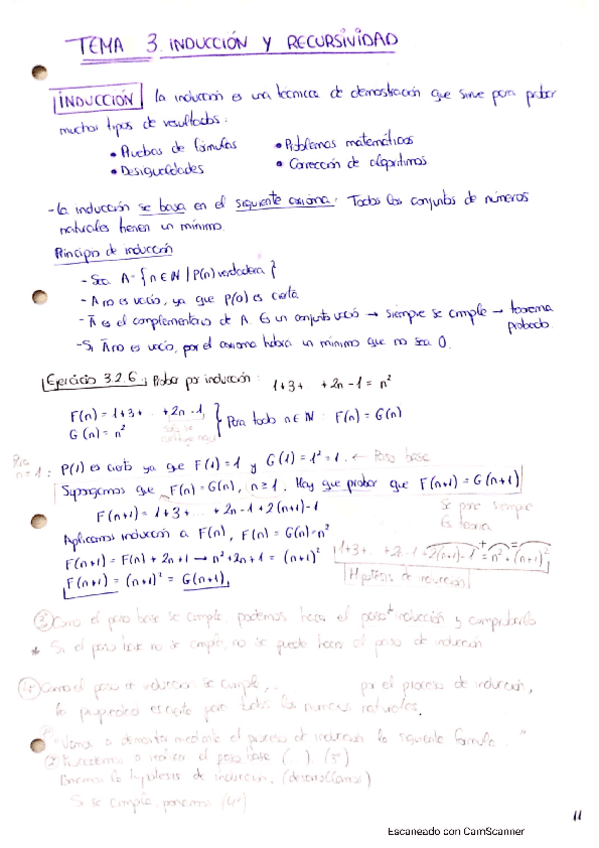 TEMA 3. INDUCCIÓN Y RECURSIVIDAD
INDUCCIÓN la inducción es una técnica de demostración que sirve para probar
muchos tipos de resultados:
• Pruebas de fórmulas
• Problemas matemáticos
• Desigualdades
• Corrección de algoritmos
- La inducción se basa en el siguiente axioma: Todos los conjuntos de números
naturales tienen un mínimo.
Principio de inducción
- Sea A = {n ∈ N | P(n) verdadera}
- A no es vacío, ya que P(0) es cierta
- Ā es el complementario de A. Es un conjunto vacío → siempre se cumple → teorema
probado.
- Si Ā no es vacío, por el axioma habrá un mínimo que no sea 0.
Ejercicio 3.2.6. Probar por inducción: 1+3+ . . +2n-1 = n²
F(n) = 1+3+ . . +2n-1
G(n) = n²
} Para todo n ∈ N : F(n) = G(n)
n=1: P(1) es cierto ya que F(1) = 1 y G(1) = 1² = 1. ← Paso base
Supongamos que F(n) = G(n), n ≥ 1. Hay que probar que F(n+1) = G(n+1)
F(n+1) = 1+3+ . . +2n-1+2(n+1)-1
Se pone siempre
Es teoría
Aplicamos inducción a F(n), F(n) = G(n) = n²
F(n+1) = F(n) + 2n+1 → n²+2n+1 = (n+1)²
1+3+ . . +2n-1+2(n+1)-1 = n² + (n+1)²
F(n+1) = (n+1)² = G(n+1)
Hipótesis de inducción
(3) Como el paso base se cumple, podemos hacer el paso inducción y comprobarlo
* Si el paso base no se cumple, no se puede hacer el paso de inducción
(4) Como el paso de inducción se cumple, . . por el proceso de inducción,
la propiedad es cierta para todos los números naturales.
"Vamos a demostrar mediante el proceso de inducción la siguiente fórmula . "
(2) Procedemos a realizar el paso base (. .) (3º)
la hipótesis de inducción, (desarrollamos)
Si se cumple, ponemos (4º)
11
Escaneado con CamScanner